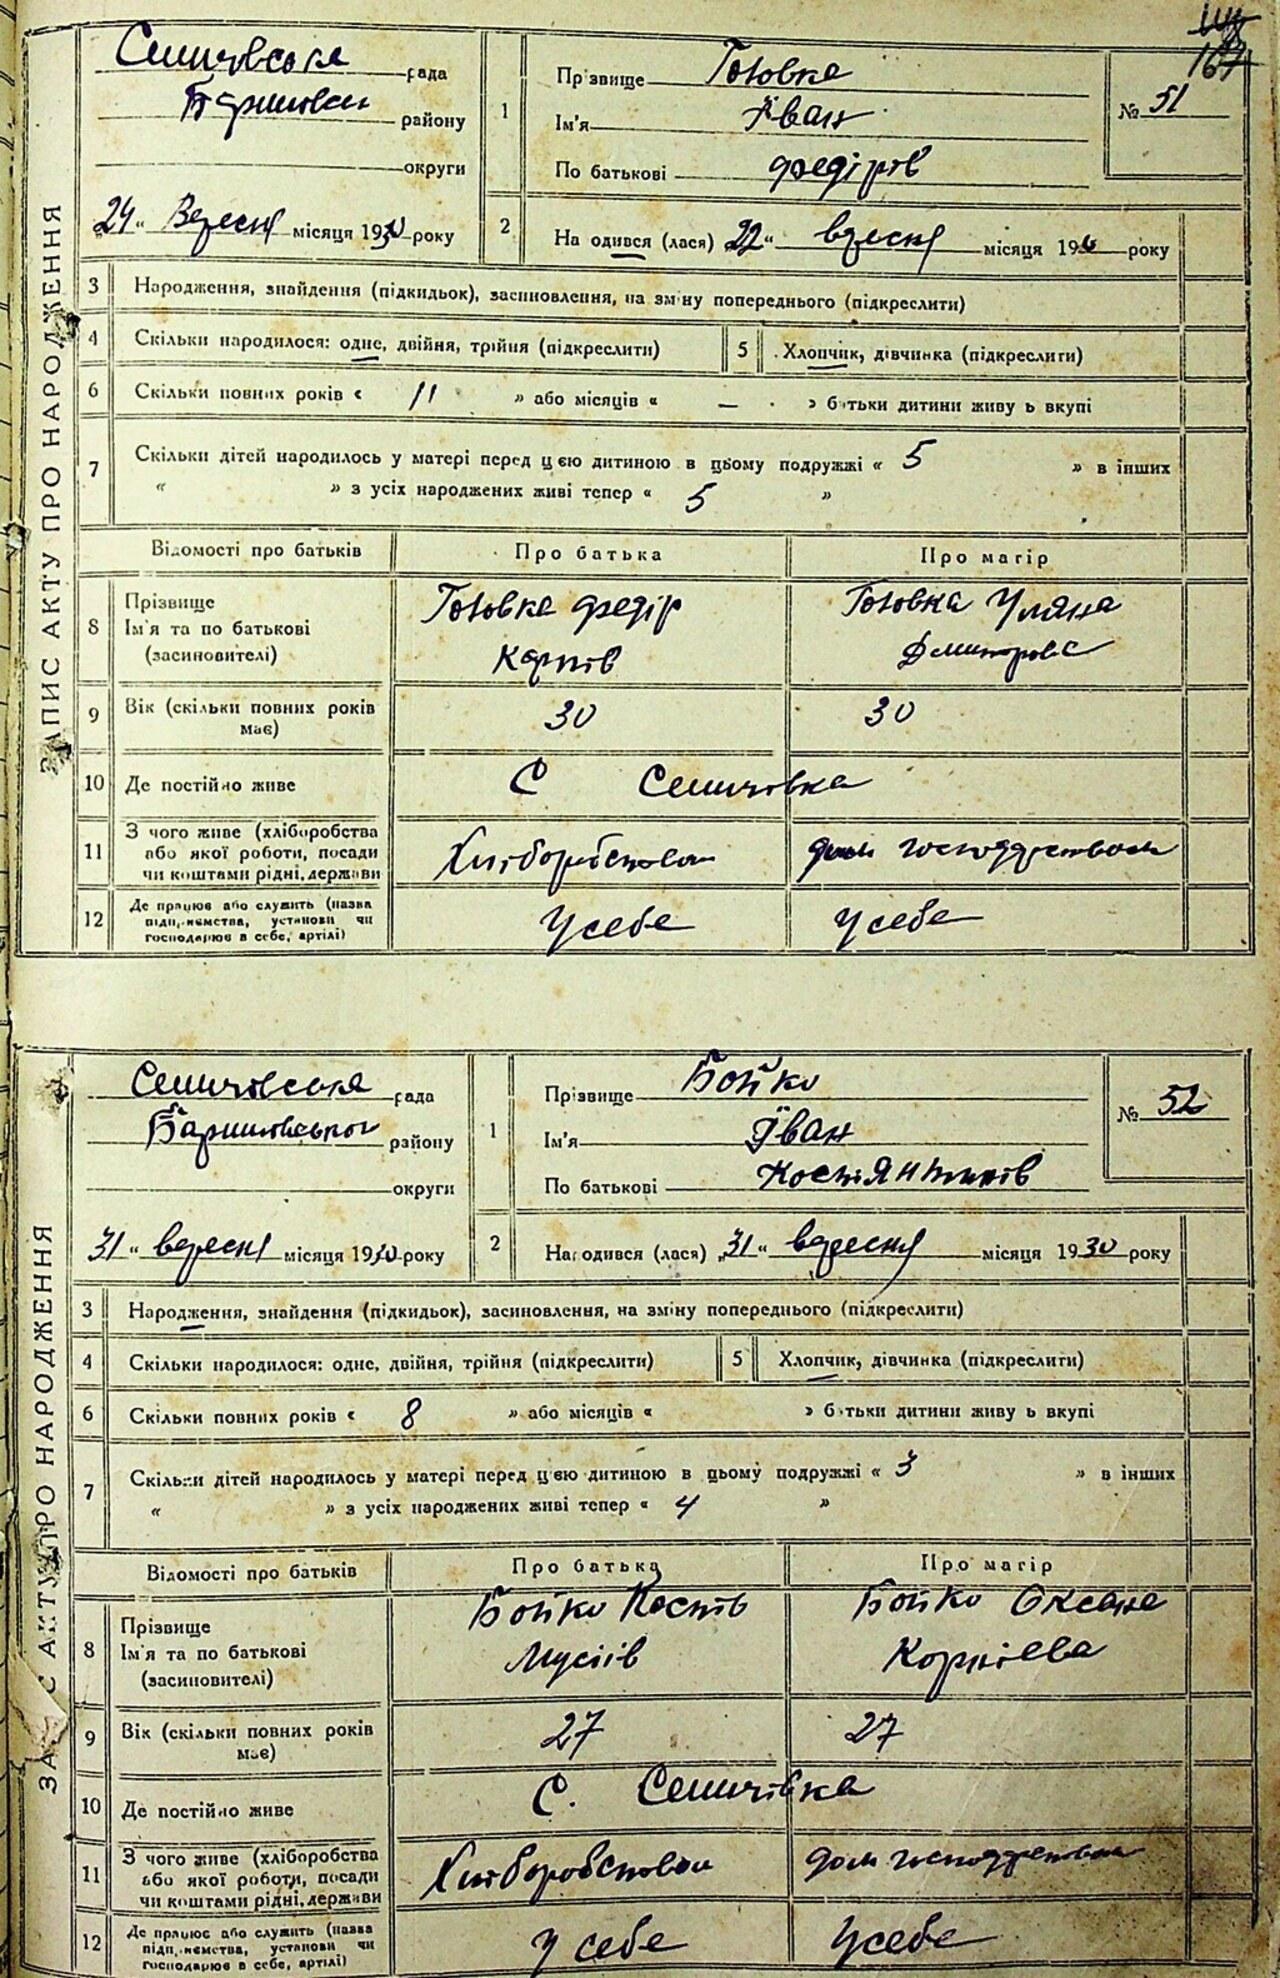 167
Селичівська рада
району
округи
"24" Вересня місяця 1930 року
1
Прізвище Головка
Ім'я Іван
По батькові Федірів
№ 51
2
Народився (лася) 22" вересня місяця 1930 року
ЗАПИС АКТУ ПРО НАРОДЖЕННЯ
3 Народження, знайдення (підкидьок), засиновлення, на зміну попереднього (підкреслити)
4 Скільки народилося: одне, двійня, трійня (підкреслити) 5 Хлопчик, дівчинка (підкреслити)
6 Скільки повних років « 11 » або місяців « — » батьки дитини живуть вкупі
7 Скільки дітей народилось у матері перед цією дитиною в цьому подружжі « 5 » в інших
« » з усіх народжених живі тепер « 5 »
Відомості про батьків Про батька Про матір
8 Прізвище Ім'я та по батькові (засиновителі)
Головка Федір Карпів
Головка Уляна Дмитрова
9 Вік (скільки повних років має) 30 30
10 Де постійно живе С Селичівка
11 З чого живе (хліборобства або якої роботи, посади чи коштами рідні, держави
Хліборобством
дом господарством
12 Де працює або служить (назва підприємства, установи чи господарює в себе, артілі)
У себе у себе
Селичівська рада
району
округи
31" вересня місяця 1930 року
1
Прізвище Бойко
Ім'я Іван
По батькові Костянтинів
№ 52
2
Народився (лася) „31" вересня місяця 1930 року
3 Народження, знайдення (підкидьок), засиновлення, на зміну попереднього (підкреслити)
4 Скільки народилося: одне, двійня, трійня (підкреслити) 5 Хлопчик, дівчинка (підкреслити)
6 Скільки повних років « 8 » або місяців « » батьки дитини живуть вкупі
7 Скільки дітей народилось у матері перед цією дитиною в цьому подружжі « 3 » в інших
« » з усіх народжених живі тепер « 4 »
Відомості про батьків Про батька Про матір
8 Прізвище Ім'я та по батькові (засиновителі)
Бойко Кость Мусіїв
Бойко Оксана Корнієва
9 Вік (скільки повних років має) 27 27
10 Де постійно живе С. Селичівка
11 З чого живе (хліборобства або якої роботи, посади чи коштами рідні, держави
Хліборобством
дом господарством
12 Де працює або служить (назва підприємства, установи чи господарює в себе, артілі)
У себе Усебе